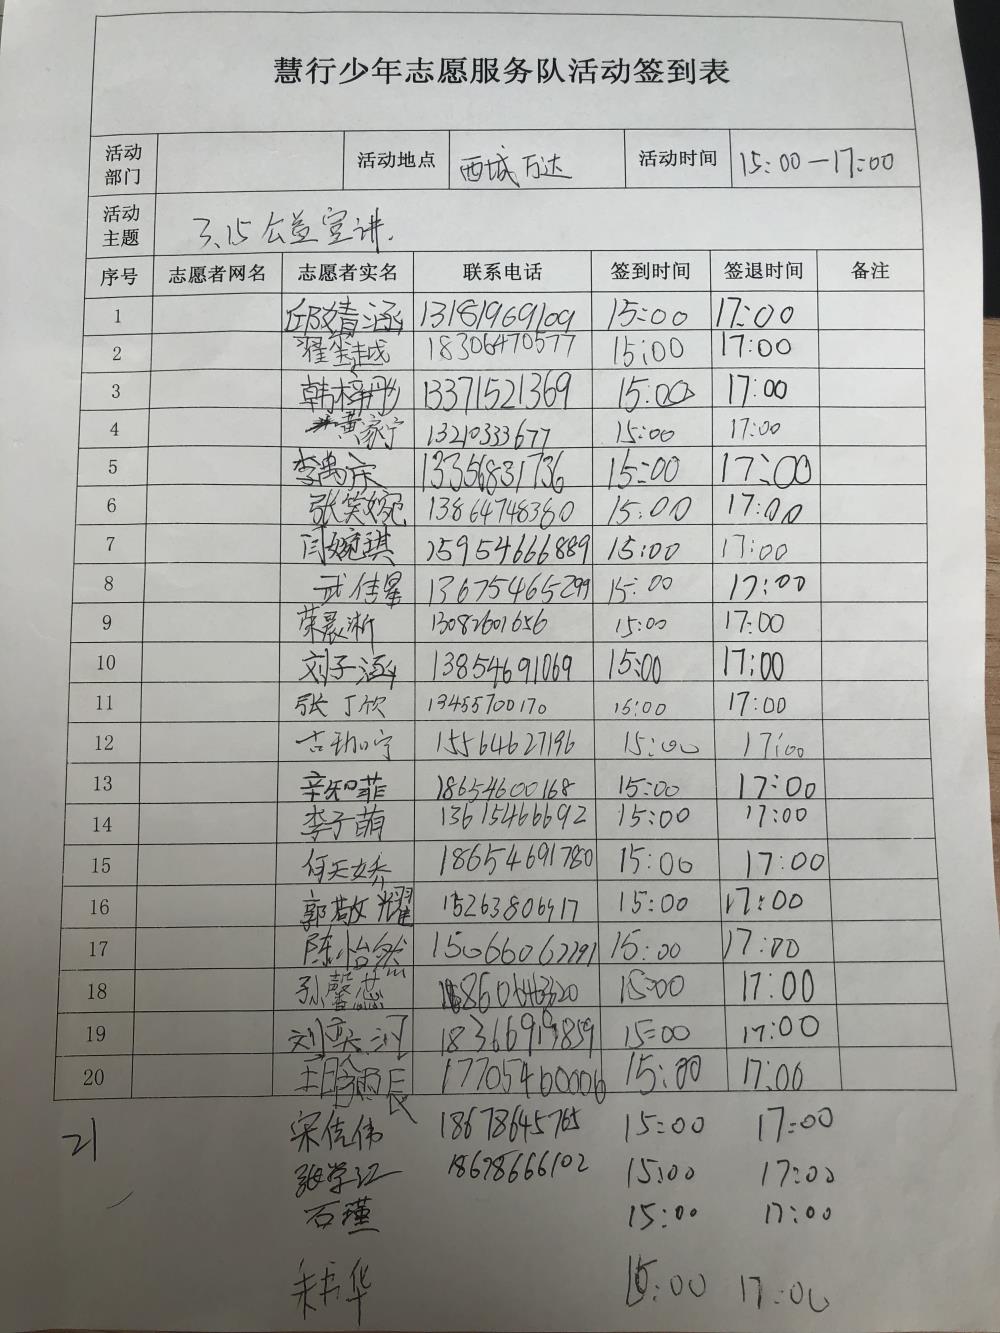 慧行少年志愿服务队活动签到表
活动部门 活动地点 西城万达 活动时间 15:00-17:00
活动主题 3.15公益宣讲.
序号 志愿者网名 志愿者实名 联系电话 签到时间 签退时间 备注
1 邱靖涵 13181969109 15:00 17:00
2 翟 越 18306470577 15:00 17:00
3 韩梓彤 13371521369 15:00 17:00
4 黄家宁 1321033677 15:00 17:00
5 李禹 13356831736 15:00 17:00
6 张笑婉 13864748360 15:00 17:00
7 闫婉琪 15954666889 15:00 17:00
8 武佳星 13675465299 15:00 17:00
9 荣晨淅 13082601656 15:00 17:00
10 刘子涵 13854691069 15:00 17:00
11 张丁欣 13455700170 15:00 17:00
12 古 宁 15564627196 15:00 17:00
13 辛知菲 18654600168 15:00 17:00
14 李子萌 13615466692 15:00 17:00
15 何天娇 18654691780 15:00 17:00
16 郭敬耀 15263806917 15:00 17:00
17 陈怡然 15066062291 15:00 17:00
18 孙馨蕊 15:00 17:00
19 刘奕河 15:00 17:00
20 17705460006 15:00 17:00
21 宋佳伟 18678645765 15:00 17:00
张学江 18678666102 15:00 17:00
石瑾 15:00 17:00
朱书华 15:00 17:00